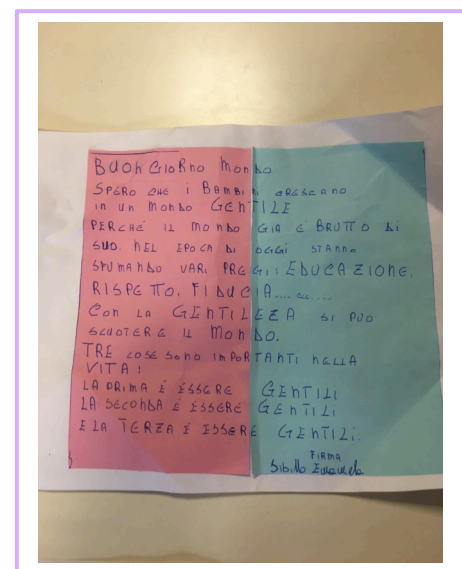 BUON GIORNO MONDO
SPERO CHE I BAMBINI CRESCANO
IN UN MONDO GENTILE
PERCHÉ IL MONDO GIA É BRUTTO DI
SUO. NEL EPOCA DI OGGI STANNO
SFUMANDO VARI PREGI: EDUCAZIONE,
RISPETTO, FIDUCIA....ecc....
CON LA GENTILEZA SI PUO
SCUOTERE IL MONDO.
TRE COSE SONO IMPORTANTI NELLA
VITA:
LA PRIMA É ESSERE GENTILI
LA SECONDA É ESSERE GENTILI
E LA TERZA É ESSERE GENTILI.
FIRMA
Sibillo Emanuela